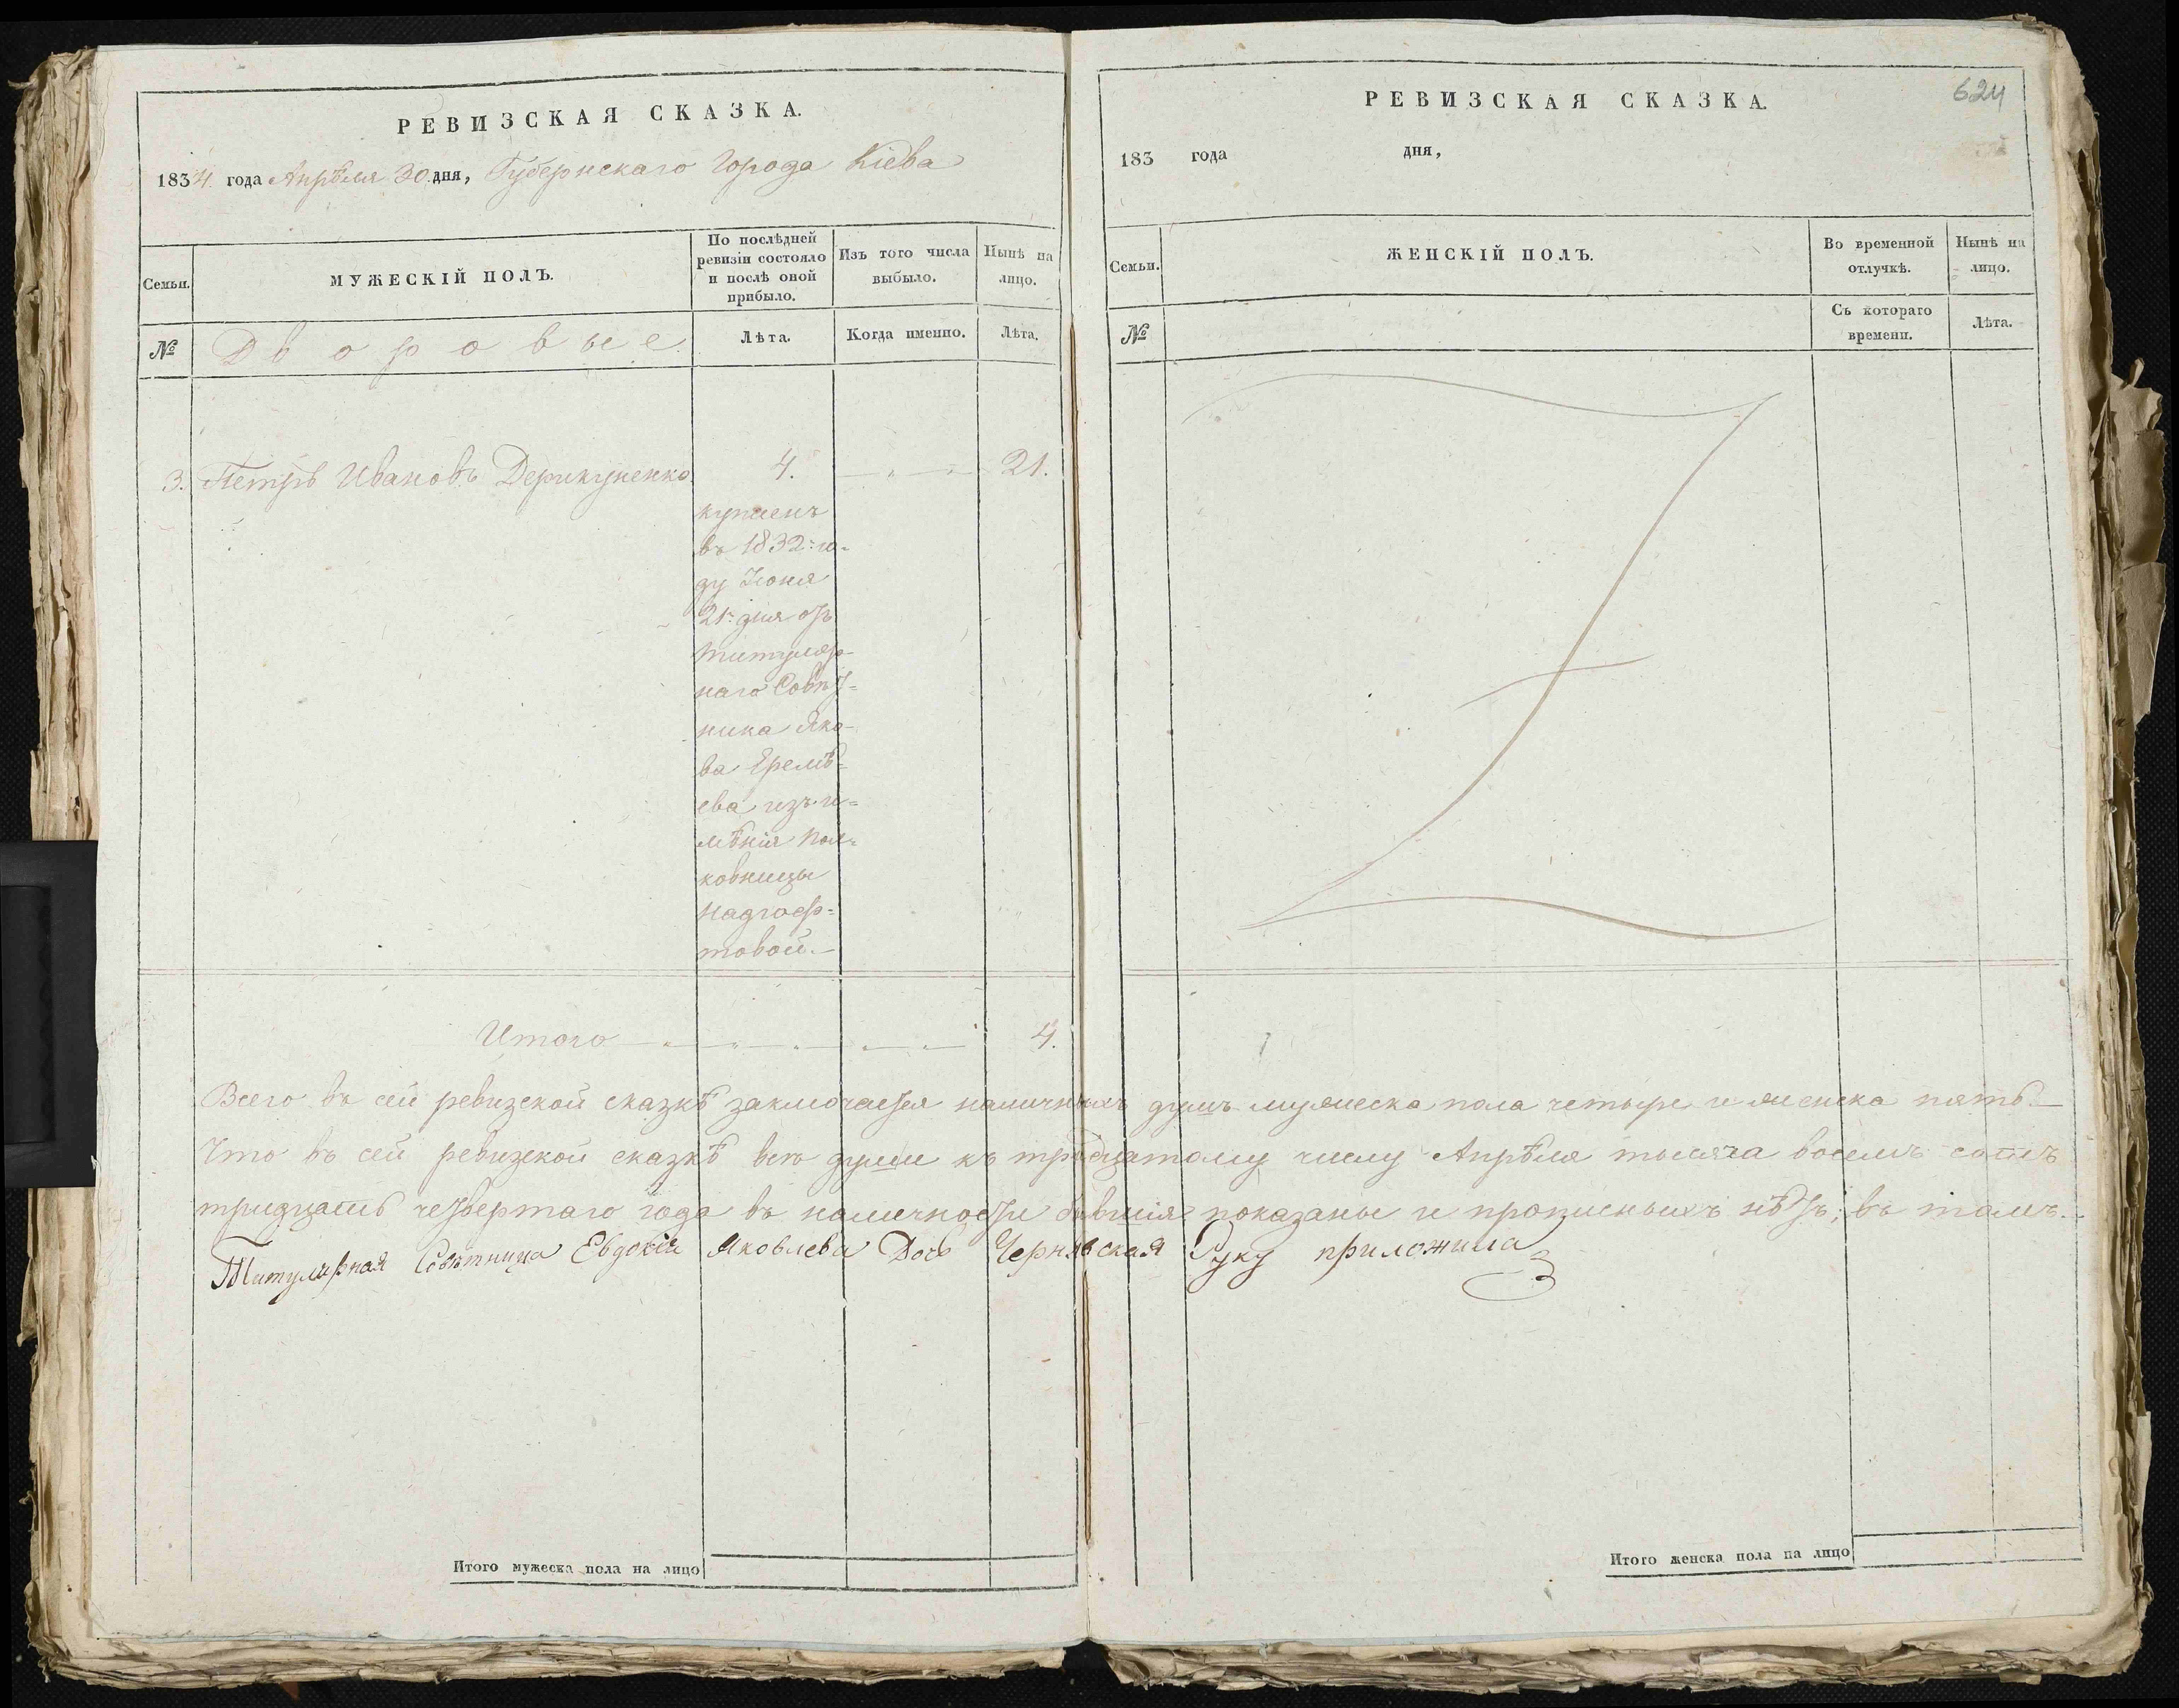 РЕВИЗСКАЯ СКАЗКА.
1834. года Апрѣля 30. дня, Губернскаго Города Кіева
Семьи.
МУЖЕСКІЙ ПОЛЪ.
По послѣдней ревизіи состояло и послѣ оной прибыло.
Изъ того числа выбыло.
Нынѣ на лицо.
№
Дворовые
Лѣта.
Когда именно.
Лѣта.
3. Петръ Ивановъ Дерикуненко 4. 21.
купленъ
въ 1832: го-
ду Іюня
21: дня отъ
титуляр-
наго Совѣт-
ника Яко-
ва Еремѣ-
ева изъ и-
мѣнія пол-
ковницы
товой.
Итого 4.
Всего въ сей ревизской сказкѣ заключается наличныхъ душъ мужеска пола четыре и женска пять.
Что въ сей ревизской сказкѣ всѣ души къ тридцатому числу Апрѣля тысяча восемь сотъ
тридцать четвертаго года въ наличности бывшія показаны и прописныхъ нѣтъ; въ томъ.
Титулярная Совѣтница Евдокія Яковлева Дочь Чернявская Руку приложила
Итого мужеска пола на лицо
624
РЕВИЗСКАЯ СКАЗКА.
183 года дня,
Семьи.
ЖЕНСКІЙ ПОЛЪ.
Во временной отлучкѣ.
Нынѣ на лицо.
№
Съ котораго времени.
Лѣта.
Итого женска пола на лицо